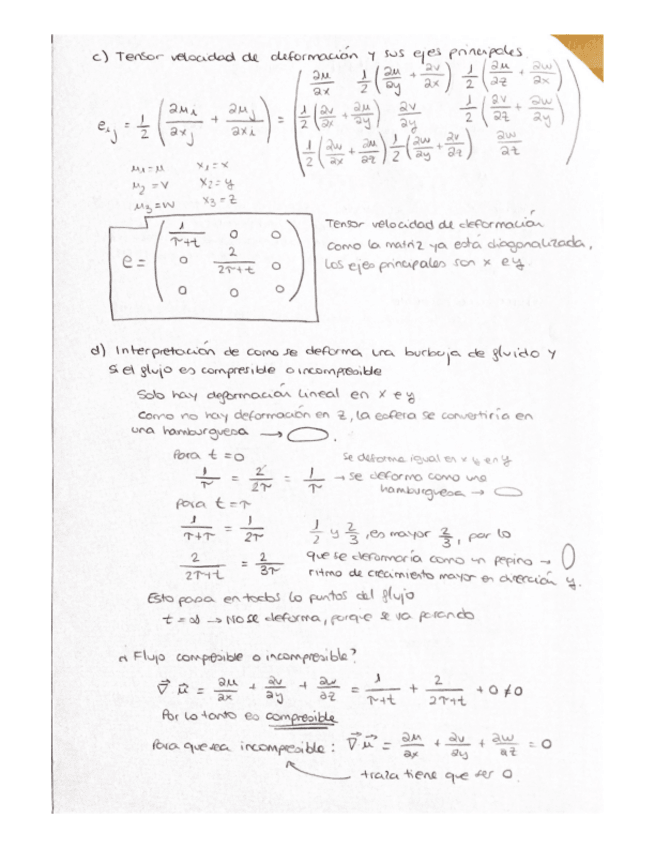 c) Tensor velocidad de deformación y sus ejes principales.
e_ij = 1/2 (∂u_i/∂x_j + ∂u_j/∂x_i) = ( ∂u/∂x 1/2(∂u/∂y + ∂v/∂x) 1/2(∂u/∂z + ∂w/∂x)
1/2(∂v/∂x + ∂u/∂y) ∂v/∂y 1/2(∂v/∂z + ∂w/∂y)
1/2(∂w/∂x + ∂u/∂z) 1/2(∂w/∂y + ∂v/∂z) ∂w/∂z )
u1 = u x1 = x
u2 = v x2 = y
u3 = w x3 = z
e = ( 1/(τ+t) 0 0
0 2/(2τ+t) 0
0 0 0 )
Tensor velocidad de deformación
como la matriz ya está diagonalizada,
los ejes principales son x e y
d) Interpretación de como se deforma una burbuja de fluido y
si el flujo es compresible o incompresible
Solo hay deformación lineal en x e y
Como no hay deformación en z, la esfera se convertiría en
una hamburguesa → .
Para t = 0
se deforma igual en x y en y
1/τ = 2/2τ = 1/τ → se deforma como una
hamburguesa →
Para t = τ
1/(τ+τ) = 1/2τ
1/2 y 2/3, es mayor 2/3, por lo
2/(2τ+t) = 2/3τ
que se deformaría como un pepino →
ritmo de crecimiento mayor en dirección y.
Esto pasa en todos lo puntos del flujo
t = ∞ → No se deforma, porque se va parando
¿Flujo compesible o incompresible?
∇ u = ∂u/∂x + ∂v/∂y + ∂w/∂z = 1/(τ+t) + 2/(2τ+t) + 0 ≠ 0
Por lo tanto es compresible
Para que sea incompesible: ∇ u = ∂u/∂x + ∂v/∂y + ∂w/∂z = 0
traza tiene que ser 0.